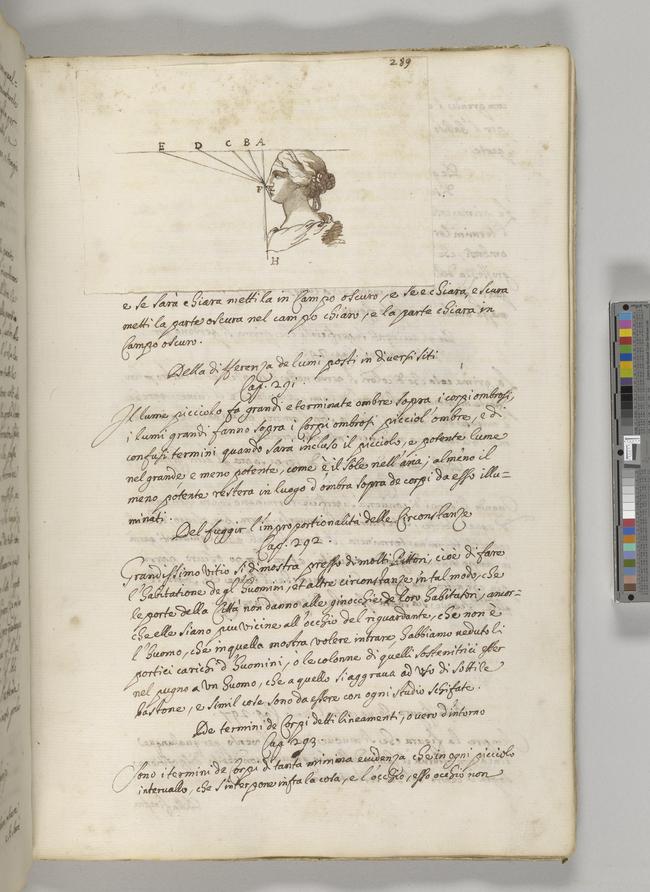 289
E D C B A
F
H
e se sarà chiara mettila in Campo oscuro, e se e chiara, e scura
mettila parte oscura nel campo chiaro, e la parte chiara in
Campo oscuro.
Della differenza de lumi posti in diversi siti
Cap. 291.
Il lume piccolo fa grandi e terminate ombre sopra i corpi ombrosi,
i lumi grandi fanno sopra i Corpi ombrosi picciol' ombre, e di
confusi termini quando sarà incluso il picciolo, e potente lume
nel grande e meno potente, come è il sole nell'aria; almeno il
meno potente restera in luogo d'ombra sopra de corpi da esso illu-
minati
Del fuggir l'improportionalità delle Circonstanze
Cap. 292.
Grandissimo vitio si dimostra presso di molti Pittori, cioè di fare
l'habitatione degl'huomini, et altre circonstanze in tal modo, che
le porte della Città non danno alle ginocchie de loro habitatori, ancor-
che elle siano piu vicine all'occhio del riguardante, che non è
l'huomo, che in quella mostra volere intrare habbiamo veduto li
portici carichi d'huomini, o le colonne di quelli sostenitrici esser
nel pugno a un huomo, che a quello si aggrava ad uso di sottile
bastone, e simil cose sono da essere con ogni studio schifate.
De termini de Corpi detti lineamenti, overo d'intorno
Cap. 293.
Sono i termini de corpi di tanta minima evidenza che in ogni picciolo
intervallo, che s'interpone infra la cosa, e l'occhio, esso occhio non